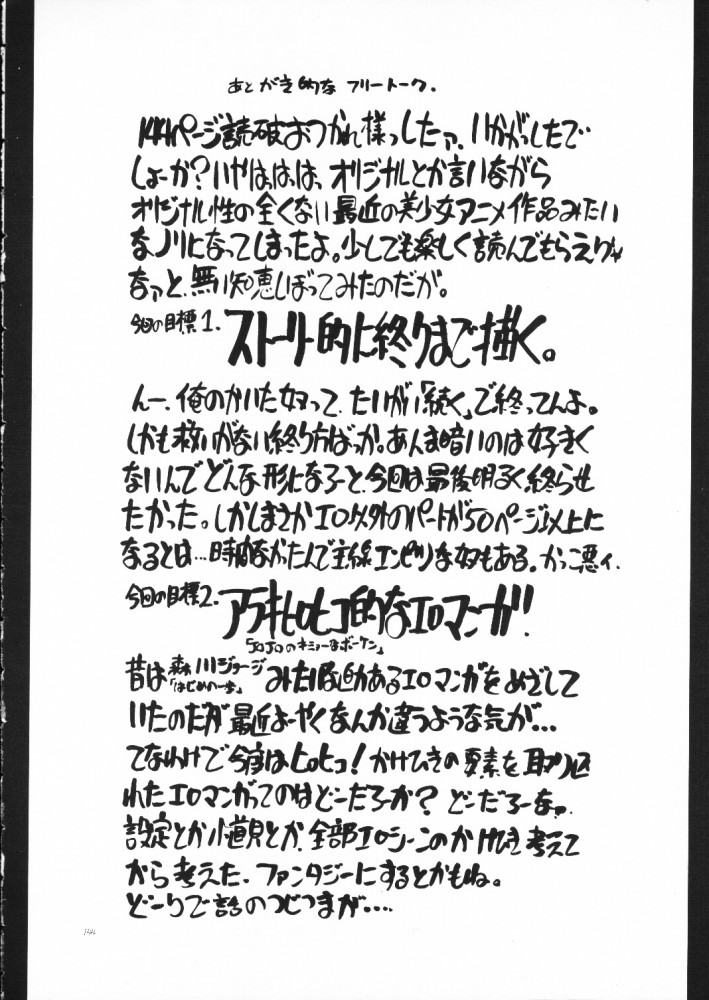 あとがき的な フリートーク.
144ページ読破おつかれ様っしたァ、いかがっしたで
しょーか?いやはははは、オリジナルとか言いながら
オリジナル性の全くない最近の美少女アニメ作品みたい
なノリになってしまったよ。少しでも楽しく読んでもらえりゃ
なァっと、無い知恵しぼってみたのだが。
今回の目標1. ストーリー的に終りまで描く。
んー、俺のかいた奴って、たいがい「続く」で終ってんよ。
しかも救いがない終り方ばっか。あんま暗いのは好きく
ないんでどんな形になろーと、今回は最後明るく終らせ
たかった。しかしまさかエロ以外のパートが50ページ以上に
なるとは…時間なかったんで主線エンピツな奴もある。かっこ悪ィ.
今回の目標2. アラキヒロヒコ的なエロマンガ!
「JOJOのキミョーなボーケン」
昔は森川ジョージ「はじめの一歩」みたい躍動あるエロマンガをめざして
いたのだが最近よーやくなんか違うような気が…
てなわけで今度はヒロヒコ!かけひきの要素を取り込
れたエロマンガってのはどーだろーか?どーだろーなァ.
設定とか小道具とか、全部エロシーンのかけひき考えて
から考えた、ファンタジーにするとかもね。
どーりで話のつじつまが….
144